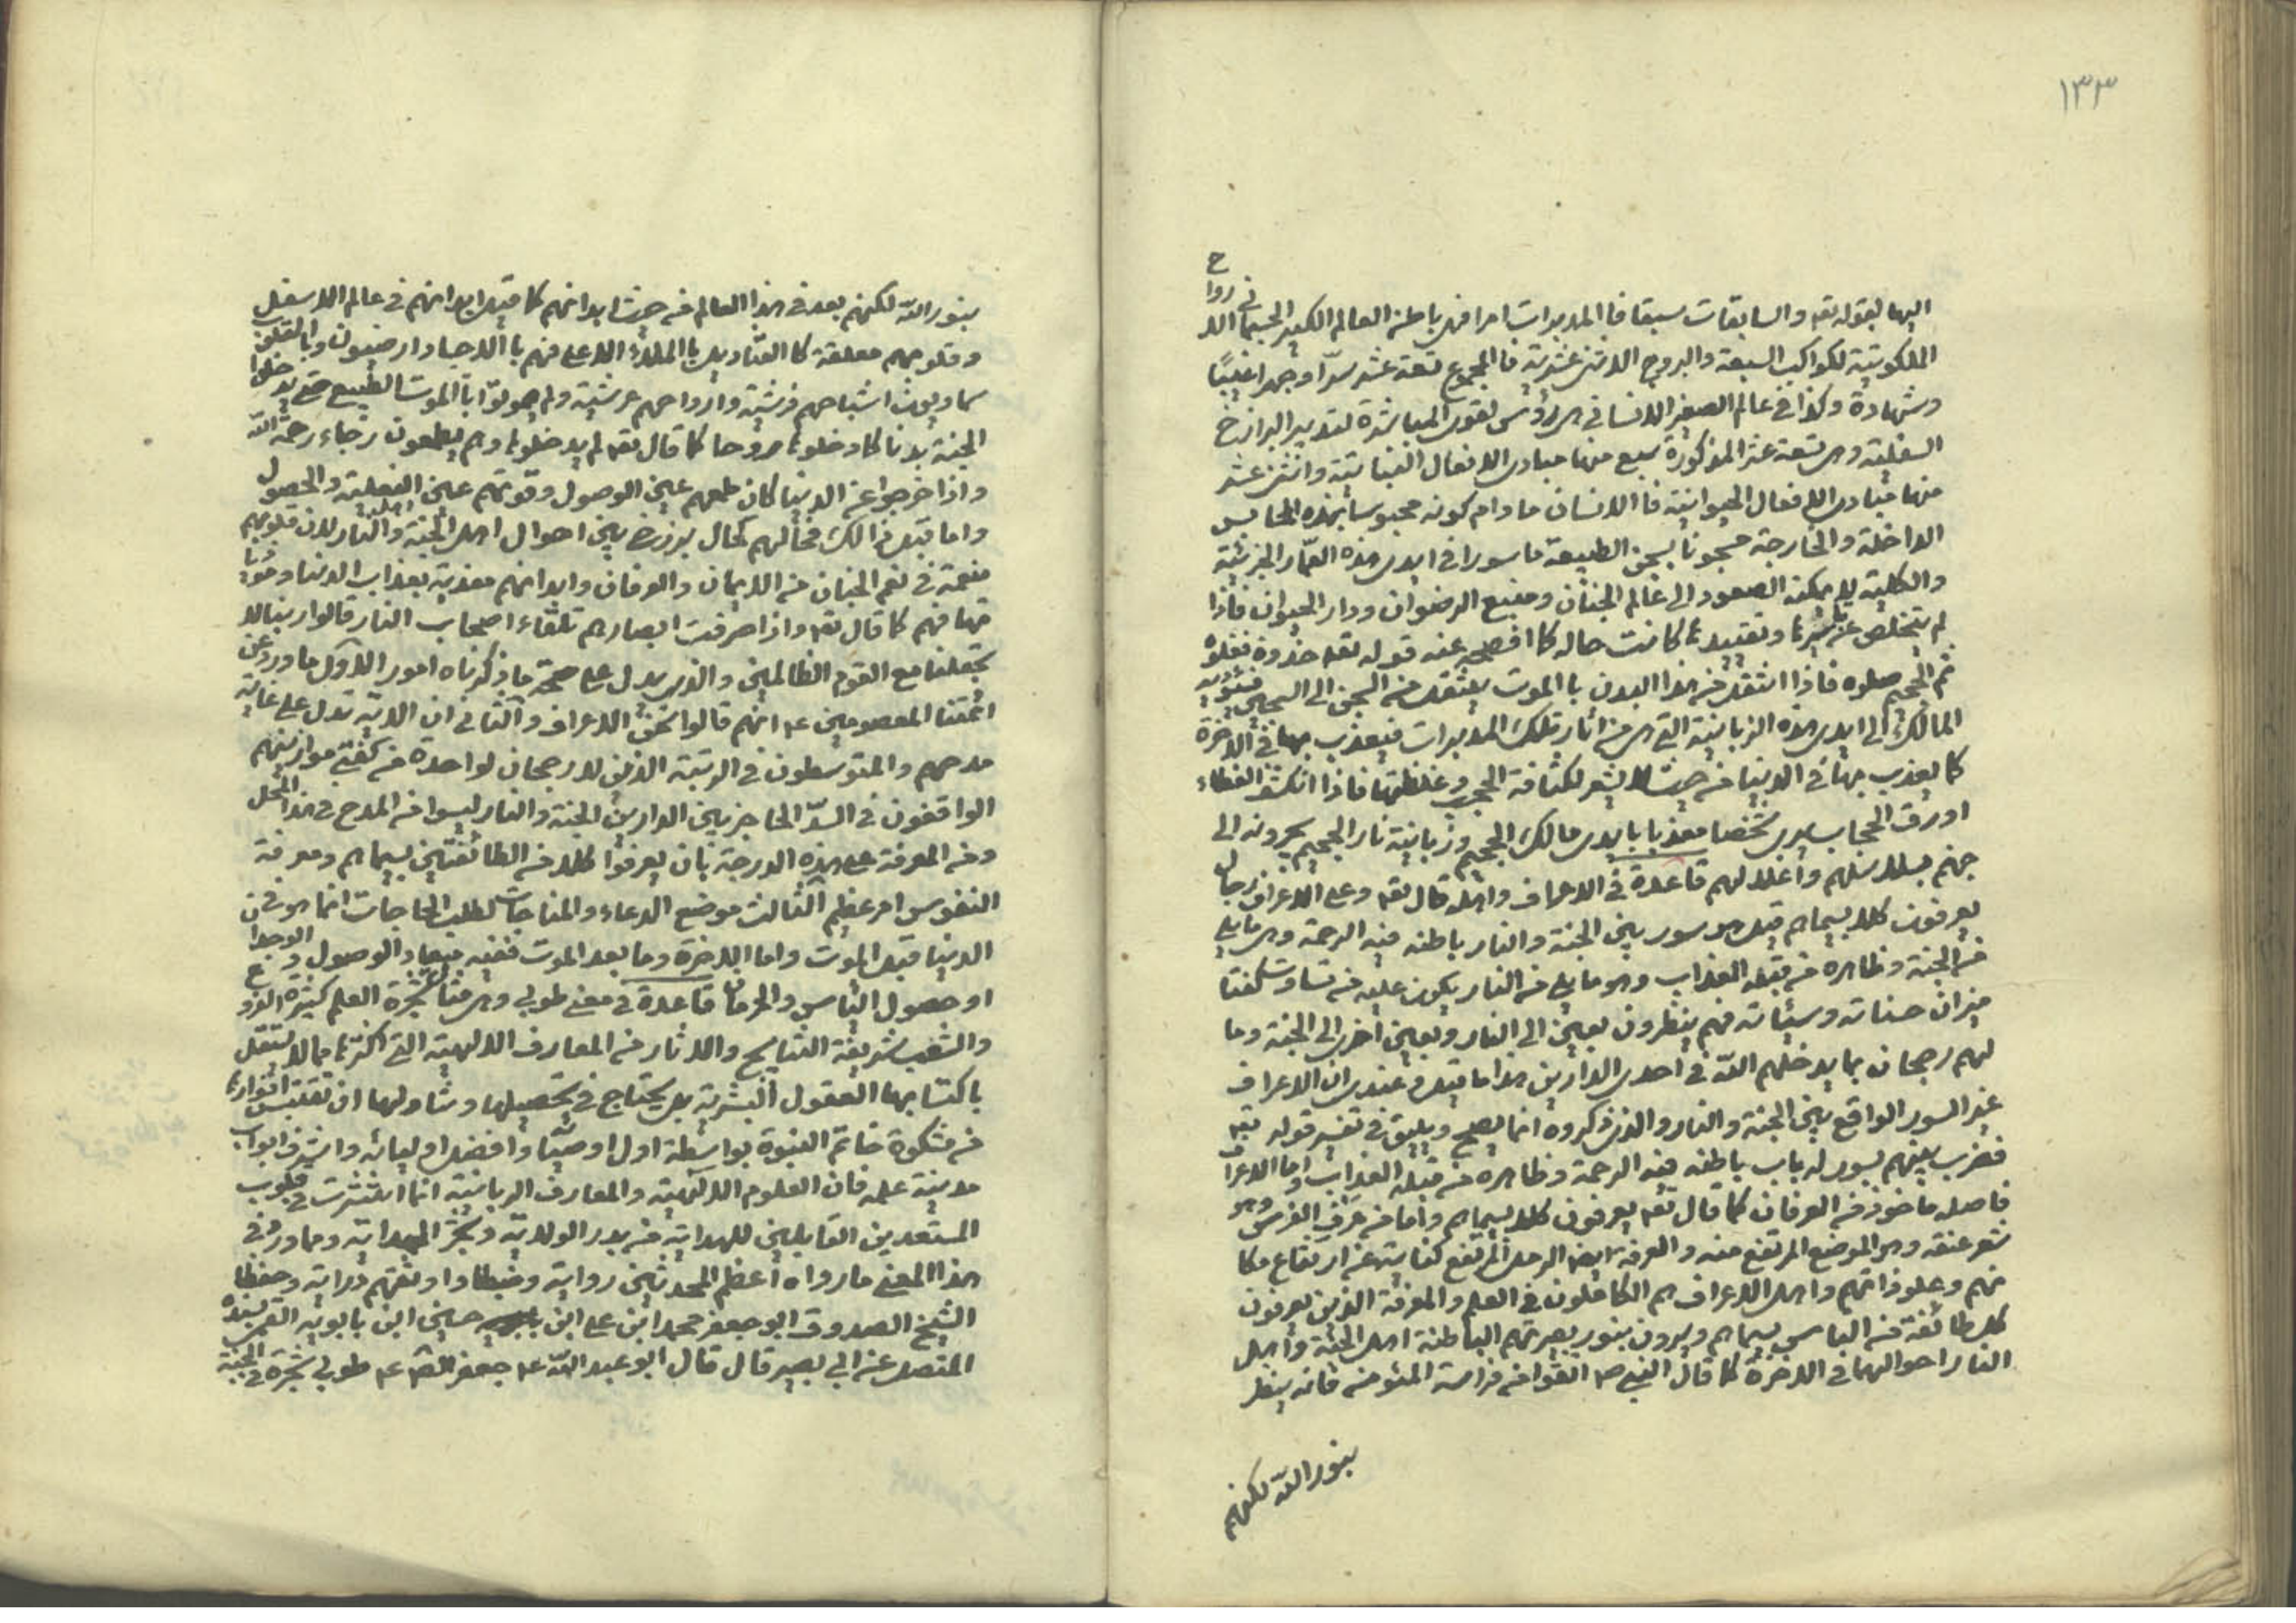 ١٣٣
اليها بقوله تعه والسابقات سبقا فا المدبرات امرا فهى باطن العالم الكبير الجسمانى الاروا
ح
الملكوتية لكواكب السبعة والبروج الاثنى عشرية فا المجموع تسعة عشر سرّا وجهرا غيبًا
وشهادة وكذا فى عالم الصغير الانسانى هى رؤس لقوى المباشرة لتدبير البرازخ
السفلية وهى تسعة عشر المذكورة سبع منها مبادى الافعال النباتية واثنى عشر
منها مبادى الافعال الحيوانية فا الانسان مادام كونه محبوسا بهذه المحابس
الداخلة والخارجة مسجونا بسجن الطبيعة ماسورا فى ايدى هذه العمّار الجزئية
والكلية لا يمكنه الصعود الى عالم الجنان ومنبع الرضوان ودار الحيوان فاذا
لم يتخلص عن تاثيرها وتقييدها كانت حاله كما افصح عنه قوله تعه خذوه فغلوه
ثم الجحيم صلوه فاذا انتقل من هذا البدن با الموت ينتقل من السجن الى السجين فيؤديه
المالك الى ايدى هذه الزبانية التى هى من اثار تلك المدبرات فيعذب بها فى الاخرة
كما يعذب بها فى الدنيا من حيث لا يشعر لكثافة الحجب وغلظتها فاذا انكشف الغطاء
اورق الحجاب يرى شخصا معذبا بايدى مالك الجحيم وزبانية نار الجحيم يجرونه الى
جهنم بسلاسلهم واغلالهم قاعدة فى الاعراف واهله قال تعه وعلى الاعراف رجال
يعرفون كلا بسيماهم قيل هو سور بين الجنة والنار باطنه فيه الرحمة وهى ما يلى
من الجنة وظاهره من قبله العذاب وهو ما يلى من النار يكون عليه من تساوت كفتا
ميزان حسناته وسيئاته فهم ينظرون بعين الى النار وبعين اخرى الى الجنة وما
لهم رجحان بما يدخلهم اللّه فى احدى الدارين هذا ما قيل وعندى ان الاعراف
غير السور الواقع بين الجنة والنار والذى ذكروه انما يصح ويليق فى تفسير قوله تعه
فضرب بينهم بسور له باب باطنه فيه الرحمة وظاهره من قبله العذاب واما الاعراف
فاصله ماخوذ من العرفان كما قال تعه يعرفون كلا بسيماهم واما من عرف الفرس وهو
شعر عنقه وهو الموضع المرتفع منه والعرفة ايضا الرمل المرتفع كناية عن ارتفاع مكا
نهم وعلو ذاتهم واهل الاعراف هم الكاملون فى العلم والمعرفة الذين يعرفون
كل طائفة من الناس بسيماهم ويرون بنور بصيرتهم الباطنة اهل الجنة واهل
النار احوالهما فى الاخرة كما قال النبى ص اتقوا من فراسة المؤمن فانه ينظر
بنور اللّه لكنهم
بنور اللّه لكنهم بعد فى هذا العالم من حيث ابدانهم كما قيل ابدانهم فى عالم الاسفل
وقلوبهم معلقة كا القناديل با الملاء الاعلى فهم با الاجساد ارضيون وبا القلوب
سماويون اشباحهم فرشية وارواحهم عرشية ولم يموتوا با الموت الطبيعى حتى يدخلوا
الجنة بدنا كما دخلوها روحا كما قال تعه لم يدخلوها وهم يطمعون رجاء رحمة اللّه
واذا خرجوا عن الدنيا كان طمعهم عين الوصول وقوتهم عين الفعلية والحصول
واما قبل ذالك فحالهم كحال برزخ بين احوال اهل الجنة واهل النار لان قلوبهم
منعمة فى نعم الجنان من الايمان والعرفان وابدانهم معذبة بعذاب الدنيا وموذيا
تها فهم كما قال تعه واذا صرفت ابصارهم تلقاء اصحاب النار قالوا ربنا لا
تجعلنا مع القوم الظالمين والذى يدل على صحة ما ذكرناه امور الاول ما ورد عن
ائمتنا المعصومين عه انهم قالوا نحن الاعراف والثانى ان الاية تدل على غاية
مدحهم والمتوسطون فى الرتبة الذين لا رجحان لواحدة من كفتى موازينهم
الواقفون فى السدّ الحاجز بين الدارين الجنة والنار ليسوا من المدح فى هذا المحل
ومن المعرفة على هذه الدرجة بان يعرفوا كلا من الطائفتين بسيماهم ومعرفة
النفوس امر عظيم الثالث موضع الدعاء والمناجات لطلب الحاجات انما هو فى
الدنيا قبل الموت واما الاخرة وما بعد الموت ففيه ميعاد الوصول والوجدان
او حصول الياس والحرمان قاعدة فى معنى طوبى وهى مثال شجرة العلم كثيرة الفروع
والشعب شريفة النتايج والاثار من المعارف الالهية التى اكثرها مما لا تستقل
باكتسابها العقول البشرية بل يحتاج فى تحصيلها وتناولها ان تقتبس انوارها
من مشكوة خاتم النبوة بواسطة اول اوصيّا وافضل اوليائه واشرف ابواب
مدينة علمه فان العلوم الالهية والمعارف الربانية انما انتشرت فى قلوب
المستعدين القابلين للهداية من بدر الولاية وبحر الهداية ومما ورد فى
هذا المعنى ما رواه اعظم المحدثين رواية وضبطا واوثقهم دراية وحفظا
الشيخ الصدوق ابو جعفر محمد ابن على ابن حسين ابن بابويه القمى بسنده
المتصل عن ابى بصير قال قال ابو عبد اللّه عه جعفر الصه عه طوبى شجرة فى الجنة